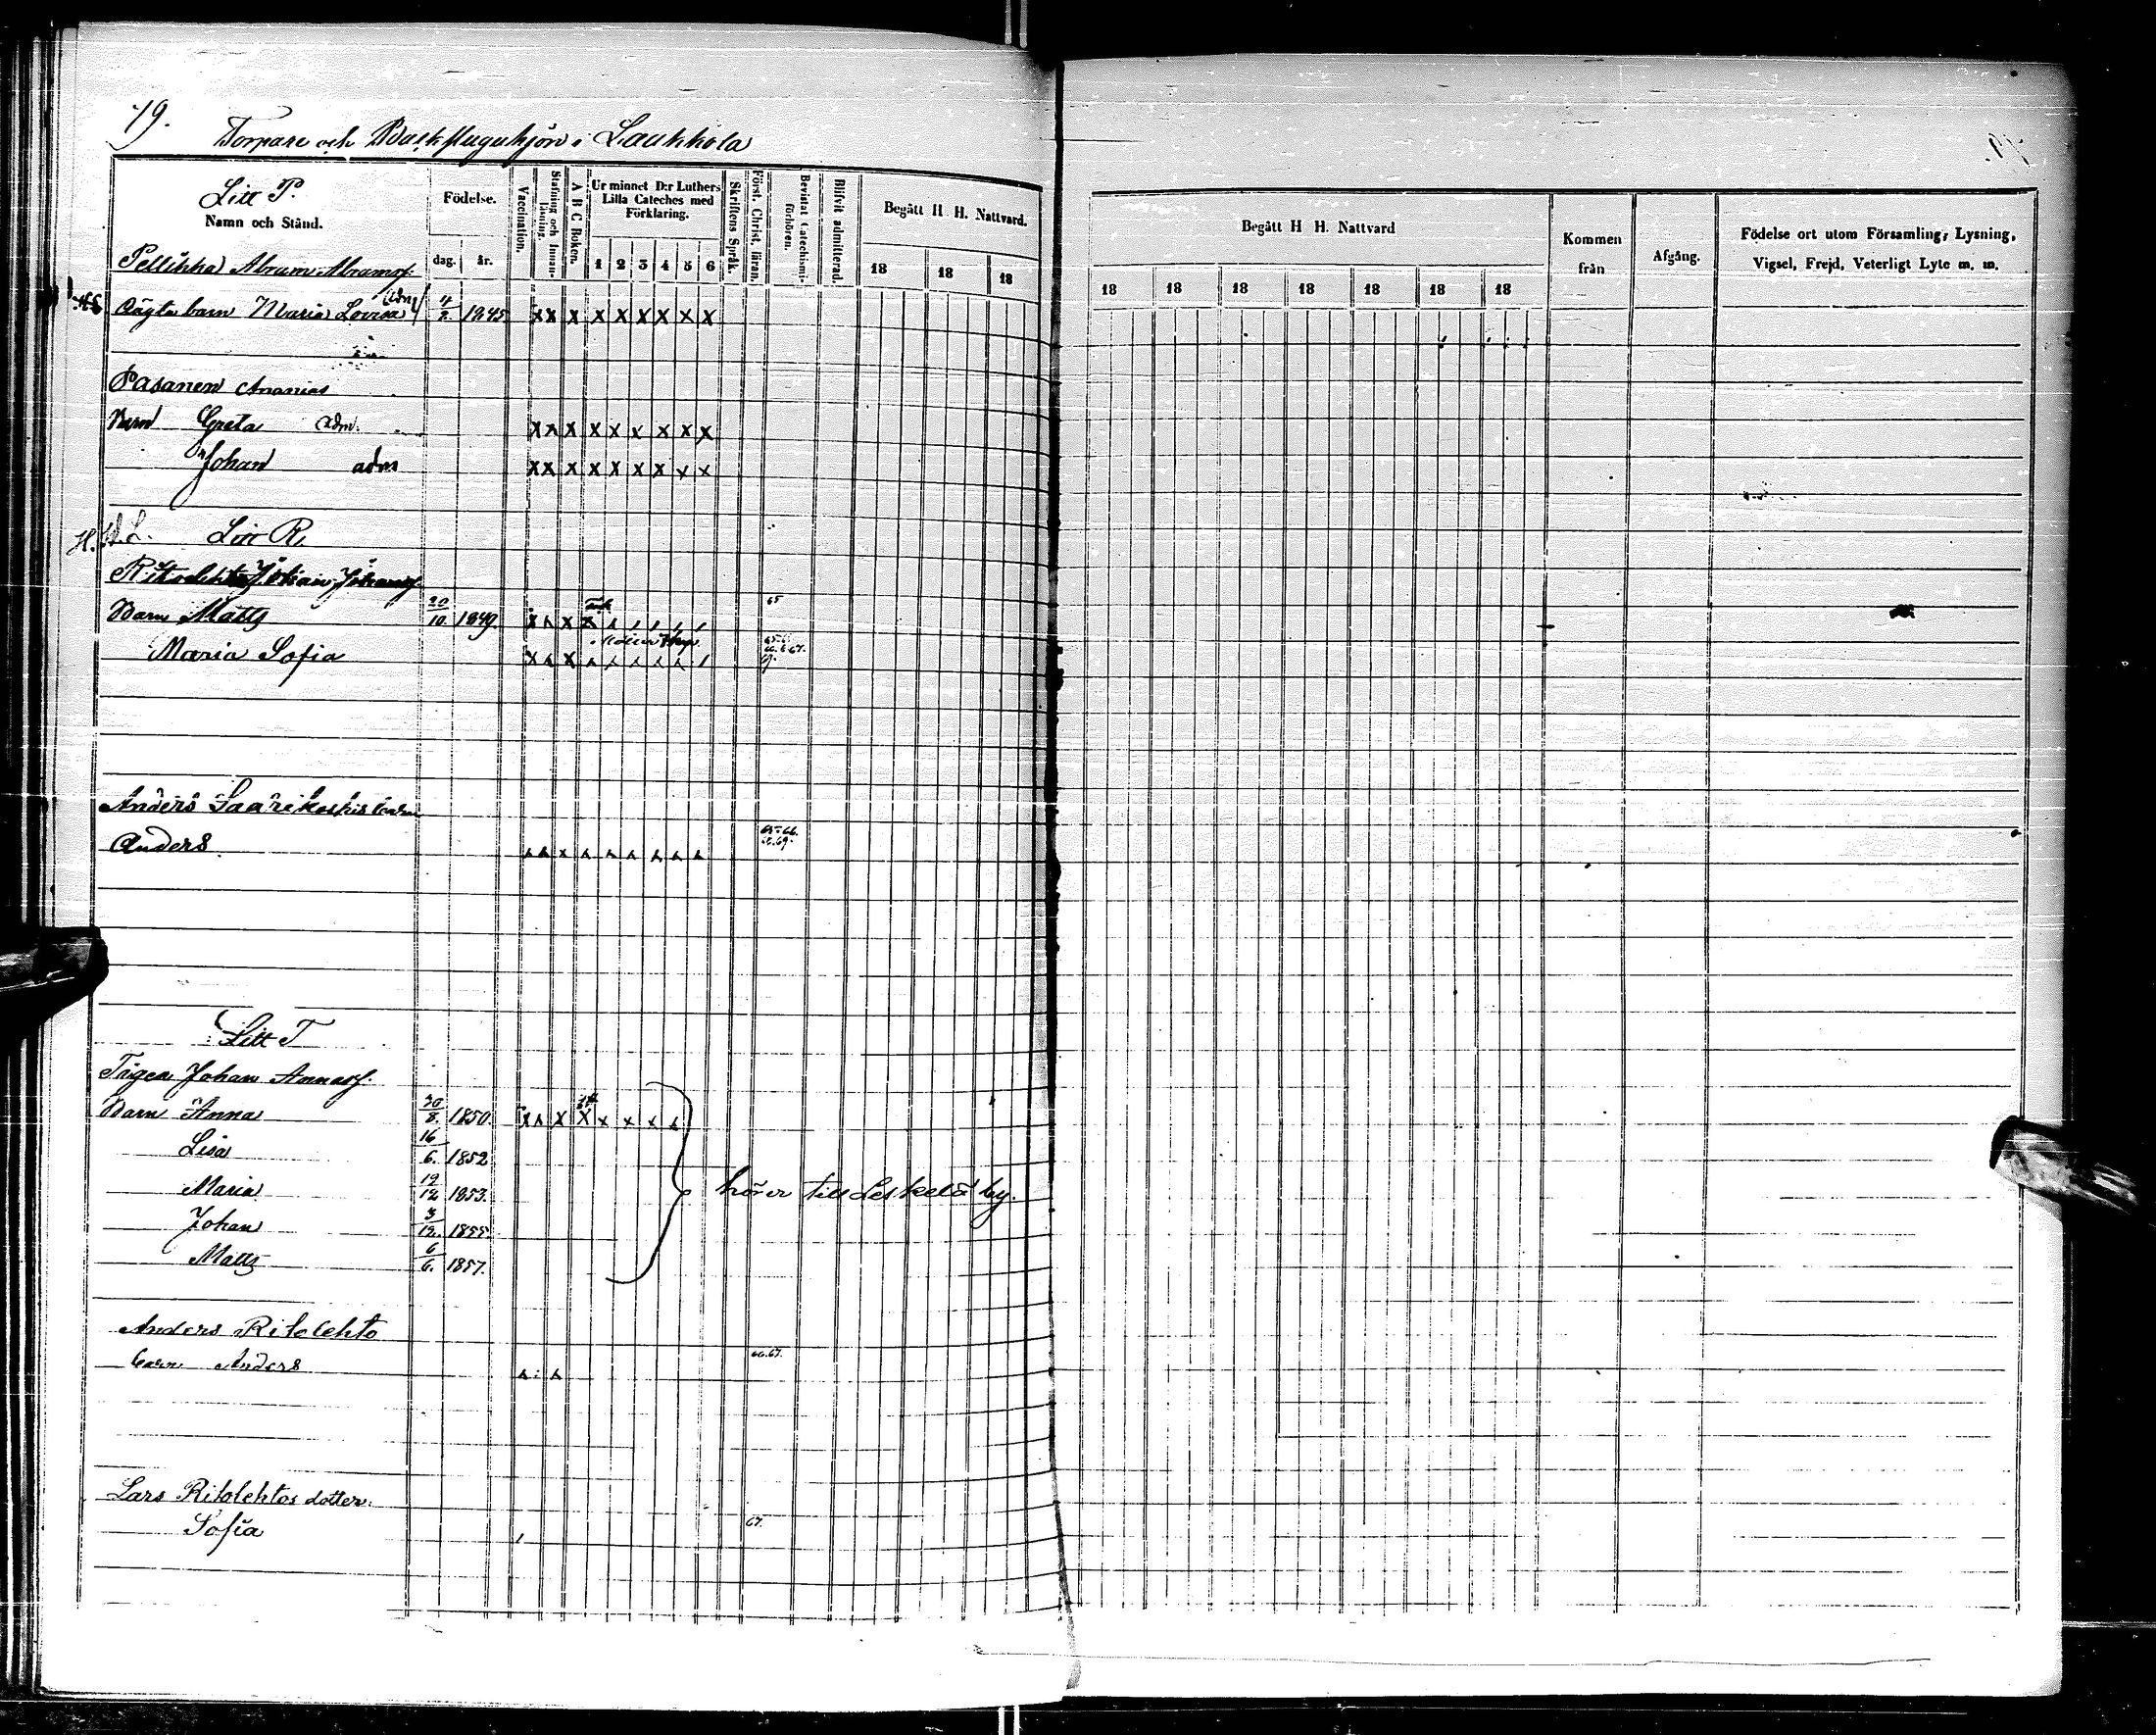 79.
Torpare och Backstuguhjon i Laukkola
Litt P.
Namn och Stånd.
Födelse.
dag. år.
Vaccination.
Stafning och Innanläsning.
A B C Boken.
Ur minnet D:r Luthers Lilla Cateches med Förklaring.
1 2 3 4 5 6
Skriftens Språk.
Först. Christ. läran.
Bevistat Catechismiförhören.
Blifvit admitterad.
Begått H H. Nattvard.
18 18 18
Begått H H. Nattvard
18 18 18 18 18 18 18
Kommen från
Afgång.
Födelse ort utom Församling, Lysning,
Vigsel, Frejd, Veterligt Lyte m. m.
Pellikka Abram Abramsf.
barn Maria Lovisa adm 4/2. 1845 x x x x x x x x x
Pasanen Ananias
Barn Greta adm. x x x x x x x x x
Johan adm x x x x x x x x x
Litt R.
Ritolehto Johan Johansf.
Barn Matts 20/10. 1849. 65
Maria Sofia
Anders Saarikoskis barn
Anders. 65.66.
Litt T
Johan Annasf.
Barn Anna 30/8. 1850.
Lisa 16/6. 1852
Maria 19/12 1853.
Johan 3/12. 1855.
Matts 6/6. 1857.
hörer till Leskelä by.
Anders Ritolehto
barn Anders 66.67.
Lars Ritolehtos dotter.
Sofia 67.